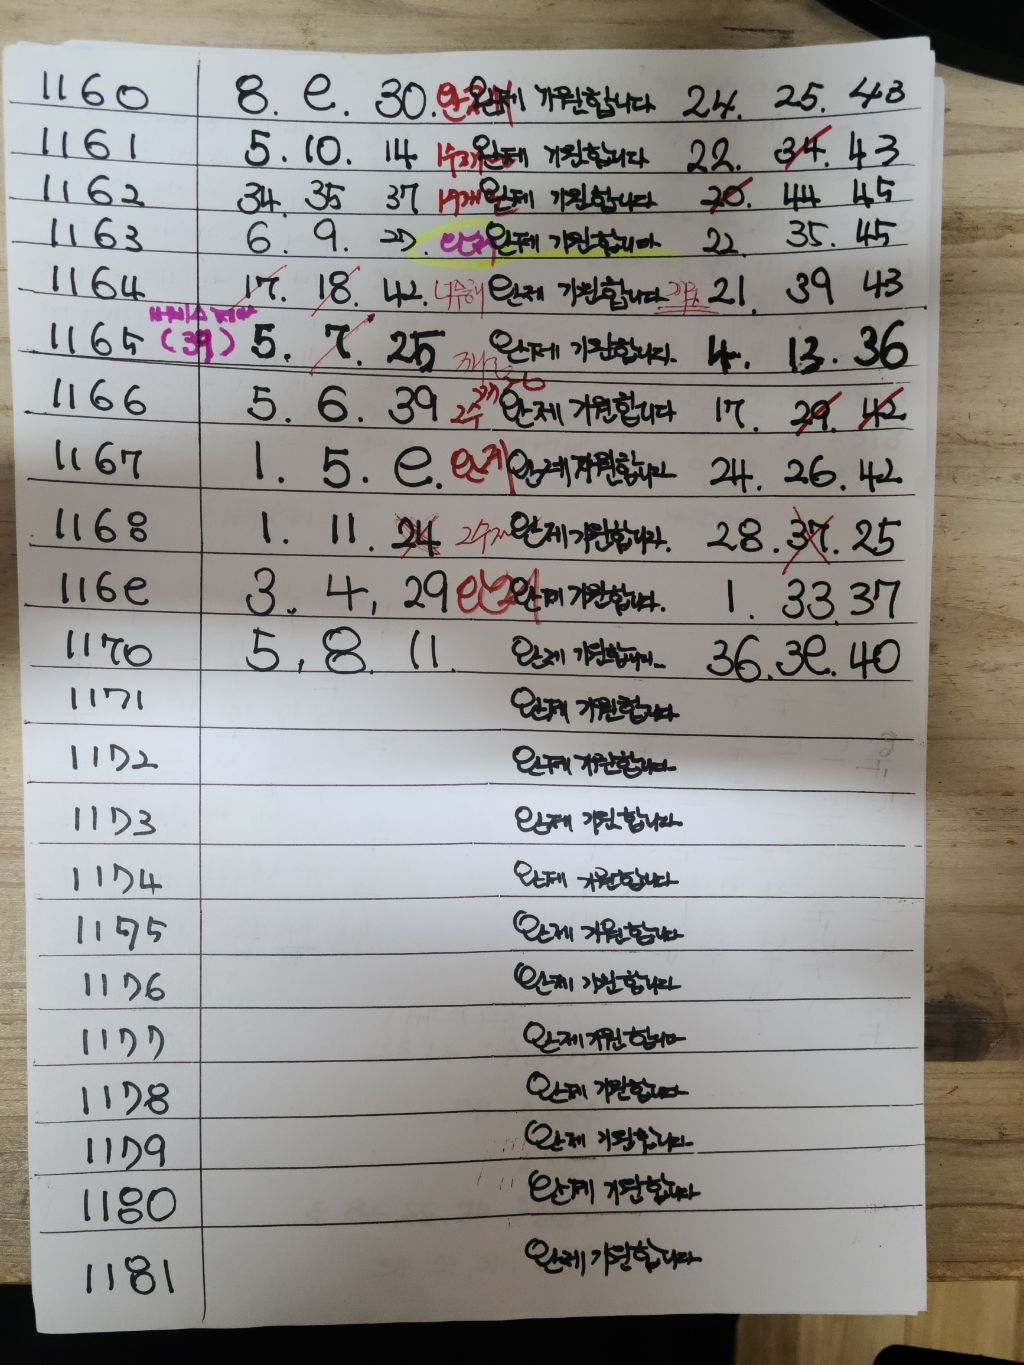 1160 8. e. 30. 완제 기원합니다 24. 25. 43
1161 5. 10. 14 완제 기원합니다 22. 34. 43
1162 34. 35 37 완제 기원합니다 20. 44 45
1163 6. 9. 27. 완제 기원합니다 22. 35. 45
1164 17. 18. 42. 완제 기원합니다 21. 39 43
1165 (39) 5. 7. 25 완제 기원합니다. 4. 13. 36
1166 5. 6. 39 2수 완제 기원합니다 17. 29. 42
1167 1. 5. e. 완제 완제 기원합니다 24. 26. 42
1168 1. 11. 24 완제 기원합니다. 28. 37. 25
116e 3. 4, 29 완제 기원합니다. 1. 33. 37
1170 5, 8. 11. 완제 기원합니다.. 36. 3e. 40
1171 완제 기원합니다
1172 완제 기원합니다
1173 완제 기원합니다
1174 완제 기원합니다
1175 완제 기원합니다
1176 완제 기원합니다
1177 완제 기원합니다
1178 완제 기원합니다
1179 완제 기원합니다
1180 완제 기원합니다
1181 완제 기원합니다